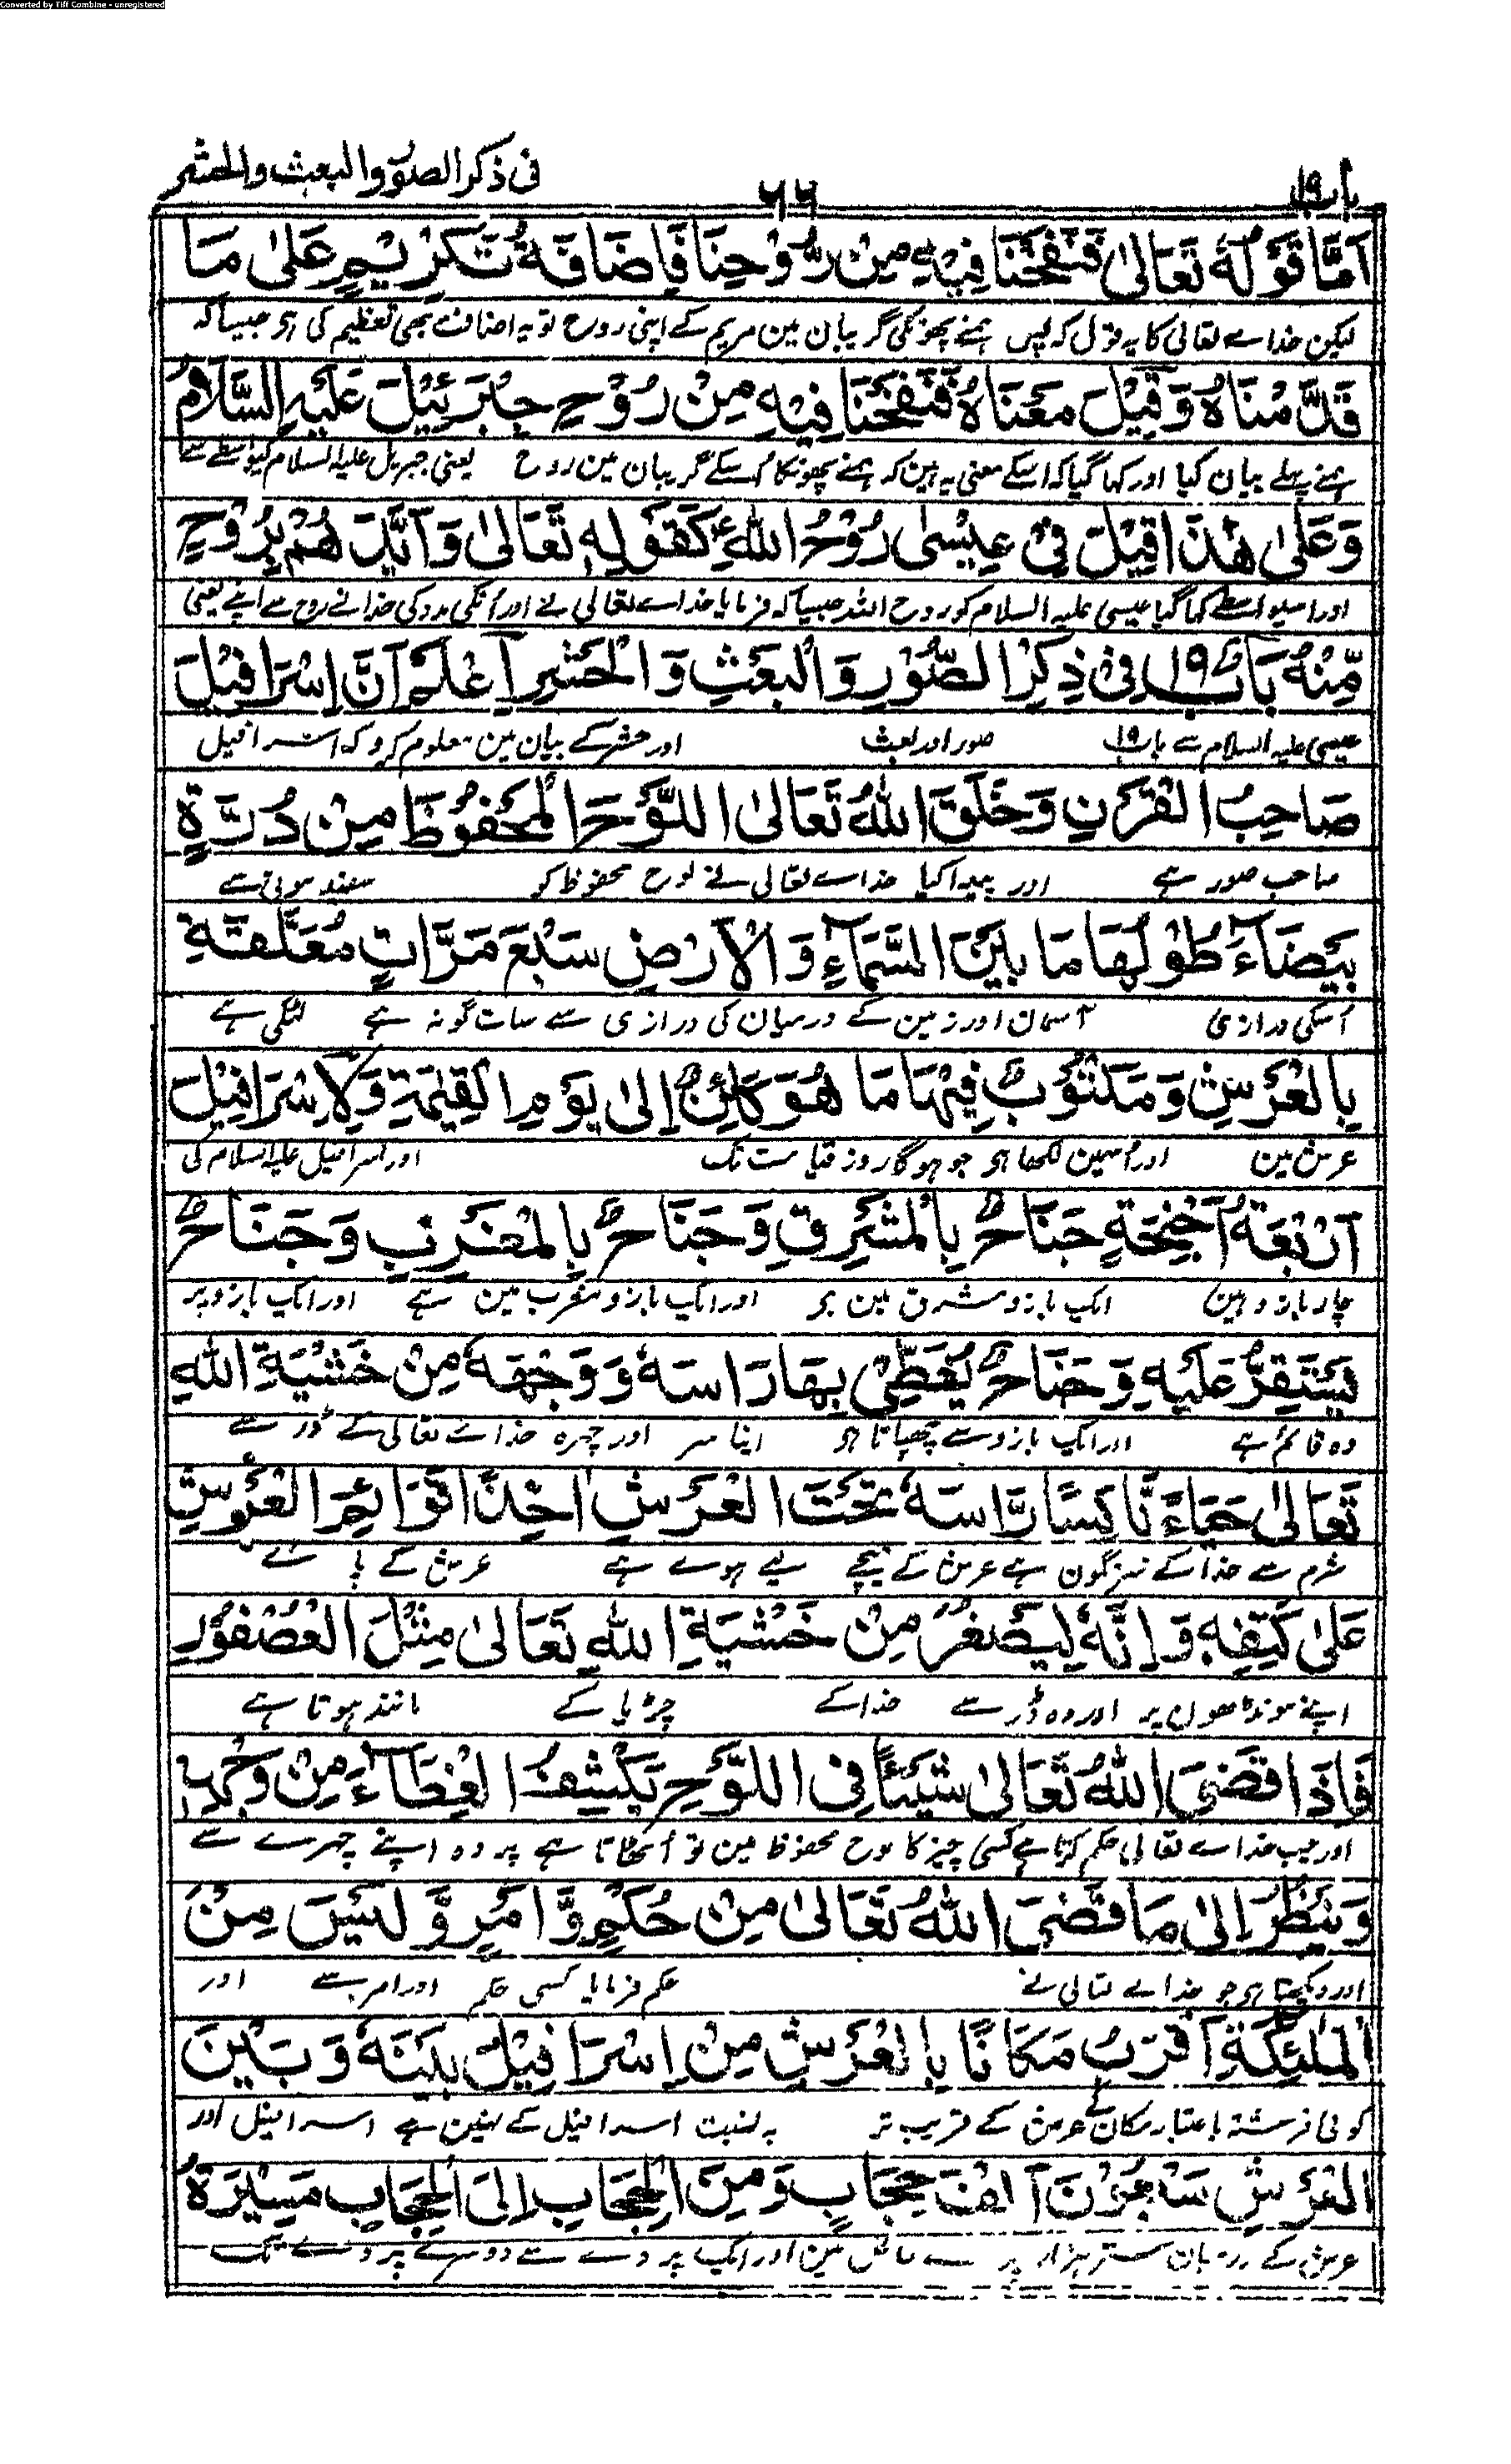 Converted by Tiff Combine - unregistered
باب۱۹ ۶۶ فی ذکر الصور والبعث والحشر
اَمَّا قَوْلُهٗ تَعَالىٰ فَنَفَخْنَا فِيْهِ مِنْ رُّوْحِنَا فَاِضَافَةُ تَكْرِيْمٍ عَلىٰ مَا
لیکن خداے تعالی کا یہ قول کہ پس ہمنے پھونکی گریبان مین مریم کے اپنی روح تو یہ اضافت بھی تعظیم کی ہی جیسا کہ
قَدَّمْنَاهُ وَقِيْلَ مَعْنَاهُ فَنَفَخْنَا فِيْهِ مِنْ رُوْحِ جِبْرَئِيْلَ عَلَيْهِ السَّلَامُ
ہمنے پہلے بیان کیا اور کہا گیا کہ اسکے معنی یہ ہین کہ ہمنے پھونکا اُسکے گریبان مین روح یعنی جبریل علیہ السلام کیواسطے سے
وَعَلىٰ هٰذَا قِيْلَ فِيْ عِيْسٰى رُوْحُ اللّٰهِ كَقَوْلِهٖ تَعَالىٰ وَاَيَّدَهُمْ بِرُوْحٍ
اور اسیواسطے کہا گیا عیسی علیہ السلام کو روح اللہ جیسا کہ فرمایا خداے تعالی نے اور اُنکی مدد کی خدا نے روح سے اپنے یعنی
مِّنْهُ بَابٌ ۱۹ فِىْ ذِكْرِ الصُّوْرِ وَالْبَعْثِ وَالْحَشْرِ اَعْلَمْ اَنَّ اِسْرَافِيْلَ
عیسی علیہ السلام سے باب ۱۹ صور اور بعث اور حشر کے بیان مین معلوم کرو کہ اسرافیل
صَاحِبُ الْقَرْنِ وَخَلَقَ اللّٰهُ تَعَالىٰ اللَّوْحَ الْمَحْفُوْظَ مِنْ دُرَّةٍ
صاحب صور ہے اور پیدا کیا خداے تعالی نے لوح محفوظ کو سفید موتی سے
بَيْضَآءَ طُوْلُهَا مَا بَيْنَ السَّمَآءِ وَالْاَرْضِ سَبْعَ مَرَّاتٍ مُعَلَّقَةٍ
اُسکی درازی آسمان اور زمین کے درمیان کی درازی سے سات گونہ ہے لٹکی ہے
بِالْعَرْشِ وَمَكْتُوْبٌ فِيْهَا مَا هُوَ كَائِنٌ اِلىٰ يَوْمِ الْقِيٰمَةِ وَلِاِسْرَافِيْلَ
عرش مین اور اُسمین لکھا ہی جو ہوگا روز قیامت تک اور اسرافیل علیہ السلام کی
اَرْبَعَةُ اَجْنِحَةٍ جَنَاحٌ بِالْمَشْرِقِ وَجَنَاحٌ بِالْمَغْرِبِ وَجَنَاحٌ
چار بازو ہین ایک بازو مشرق مین ہی اور ایک بازو مغرب مین ہے اور ایک بازو پر
يَسْتَقِرُّ عَلَيْهِ وَجَنَاحٌ يُغَطِّىْ بِهَا رَاسَهٗ وَوَجْهَهٗ مِنْ خَشْيَةِ اللّٰهِ
وہ قائم ہے اور ایک بازو سے چھپاتا ہی اپنا سر اور چہرہ خداے تعالی کے ڈر سے
تَعَالىٰ حَيَاءً نَّاكِسًا رَّاسَهٗ تَحْتَ الْعَرْشِ اٰخِذًا قَوَائِمَ الْعَرْشِ
شرم سے خدا کے سرنگون ہے عرش کے نیچے لیے ہوے ہے عرش کے پائے
عَلىٰ كَتِفِهٖ وَاِنَّهٗ لَيَصْغُرُ مِنْ خَشْيَةِ اللّٰهِ تَعَالىٰ مِثْلَ الْعُصْفُوْرِ
اپنے مونڈھون پر اور وہ ڈر سے خدا کے چڑیا کے مانند ہوتا ہے
فَاِذَا قَضَى اللّٰهُ تَعَالىٰ شَيْئًا فِى اللَّوْحِ يَكْشِفُ الْغِطَآءَ مِنْ وَجْهِهٖ
اور جب خداے تعالی حکم کرتا ہے کسی چیز کا لوح محفوظ مین تو اُٹھاتا ہے پردہ اپنے چہرے سے
وَيَنْظُرُ اِلىٰ مَا قَضَى اللّٰهُ تَعَالىٰ مِنْ حُكْمٍ وَّاَمْرٍ وَّلَيْسَ مِنْ
اور دیکھتا ہی جو خداے تعالی نے حکم فرمایا کسی حکم اور امر سے اور
الْمَلٰئِكَةِ اَقْرَبُ مَكَانًا بِالْعَرْشِ مِنْ اِسْرَافِيْلَ بَيْنَهٗ وَبَيْنَ
کوئی فرشتہ باعتبار مکان کے عرش کے قریب تر بہ نسبت اسرافیل کے نہین ہے اسرافیل اور
الْعَرْشِ سَبْعُوْنَ اَلْفَ حِجَابٍ وَمِنَ الْحِجَابِ اِلَى الْحِجَابِ مَسِيْرَةُ
عرش کے درمیان ستر ہزار حائل ہین اور ایک پردے سے دوسرے پردے تک